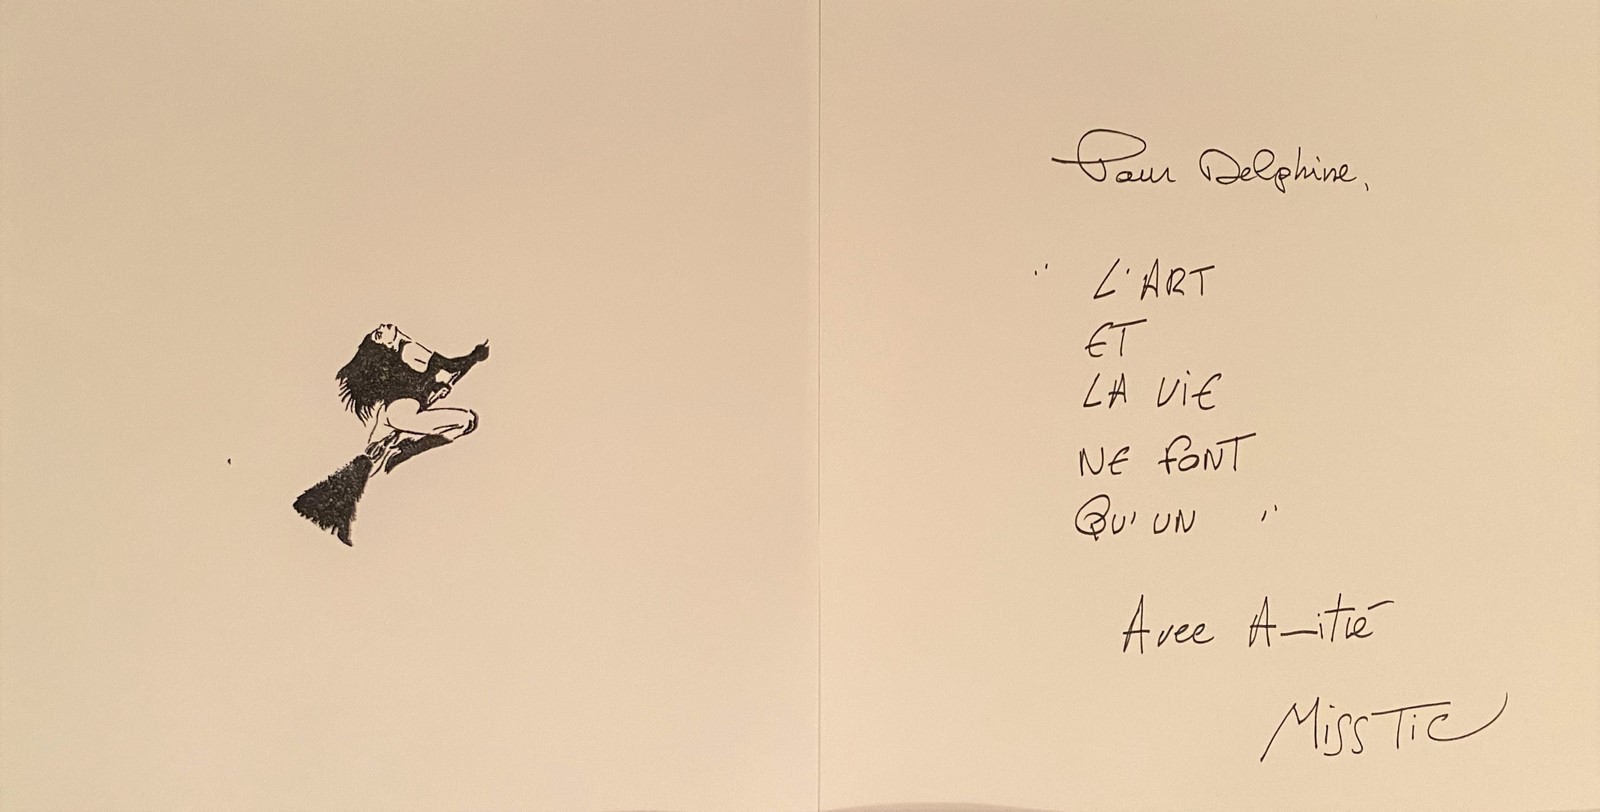 Pour Delphine,
" L'ART
ET
LA ViE
NE FONT
QU'UN "
Avec Amitié
Miss Tic